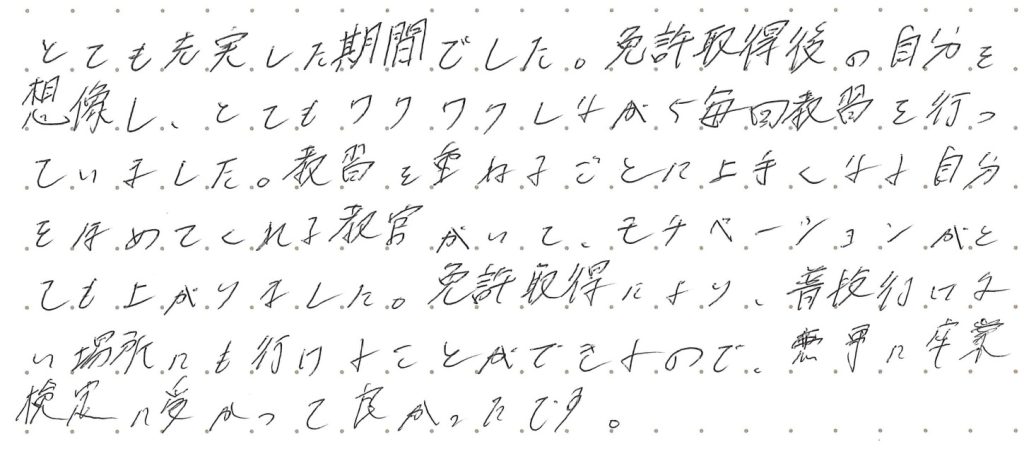 とても充実した期間でした。免許取得後の自分を
想像し、とてもワクワクしながら毎回教習を行っ
ていました。教習を重ねるごとに上手くなる自分
をほめてくれる教官がいて、モチベーションがと
ても上がりました。免許取得により、普段行けな
い場所にも行けることができるので、無事に卒業
検定に受かって良かったです。